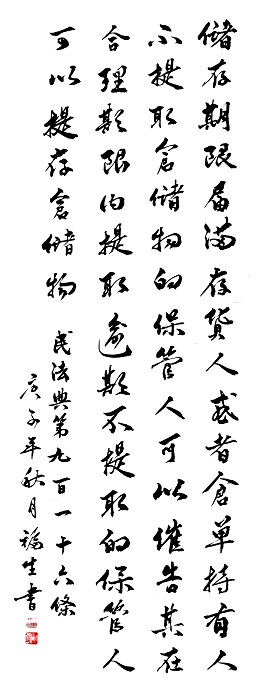 儲存期限屆滿存貨人或者倉單持有人
不提取倉儲物的保管人可以催告其在
合理期限內提取逾期不提取的保管人
可以提存倉儲物
民法典第九百一十六條
庚子年秋月福生書